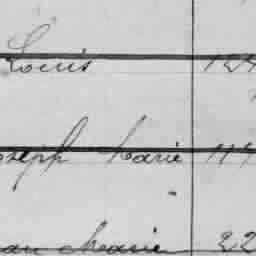 Louis 124
Joseph Marie 114
Jean Marie 22